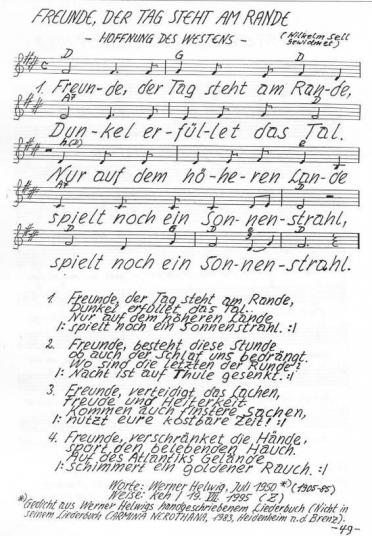 FREUNDE, DER TAG STEHT AM RANDE
- HOFFNUNG DES WESTENS -
(Wilhelm Sell
gewidmet)
D G D
1. Freun-de, der Tag steht am Ran-de,
A7 D
Dun-kel er-fül-let das Tal.
h(D) e
Nur auf dem hö-he-ren Lan-de
A7 D
spielt noch ein Son-nen-strahl,
D G D G D
spielt noch ein Son-nen-strahl.
1. Freunde, der Tag steht am Rande,
Dunkel erfüllet das Tal.
Nur auf dem höheren Lande
|: spielt noch ein Sonnenstrahl. :|
2. Freunde, besteht diese Stunde
ob auch der Schlaf uns bedrängt.
Wo sind die Letzten der Runde?
|: Nacht ist auf Thule gesenkt. :|
3. Freunde, verteidigt das Lachen,
Freude und Heiterkeit.
Kommen auch finstere Sachen,
|: nützt eure kostbare Zeit! :|
4. Freunde, verschränket die Hände,
spürt den belebenden Hauch.
Auf des Atlantiks Gelände
|: schimmert ein goldener Rauch. :|
Worte: Werner Helwig, Juli 1950 *) (1905-85)
Weise: Keh / 19. VII. 1995 (Z)
*) Gedicht aus Werner Helwigs handgeschriebenem Liederbuch (Nicht in
seinem Liederbuch CARMINA NEROTHANA, 1983, Heidenheim a.d. Brenz).
-49-